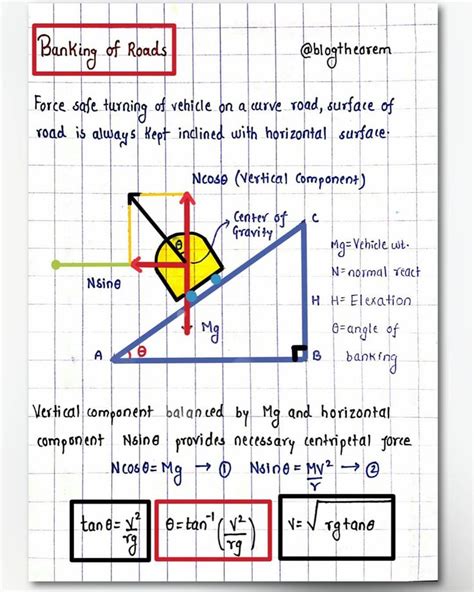 Banking of Roads
@blogtheorem
Force safe turning of vehicle on a curve road, surface of
road is always kept inclined with horizontal surface.
Ncosθ (Vertical Component)
Center of
Gravity
C
θ
Mg=Vehicle wt.
N=normal react
Nsinθ
H
H= Elexation
Mg
θ=angle of
banking
A
θ
B
Vertical component balanced by Mg and horizontal
component Nsinθ provides necessary centripetal force
Ncosθ = Mg → ① Nsinθ = MV²/r → ②
tanθ = v²/rg
θ = tan⁻¹ (v²/rg)
v = √rgtanθ